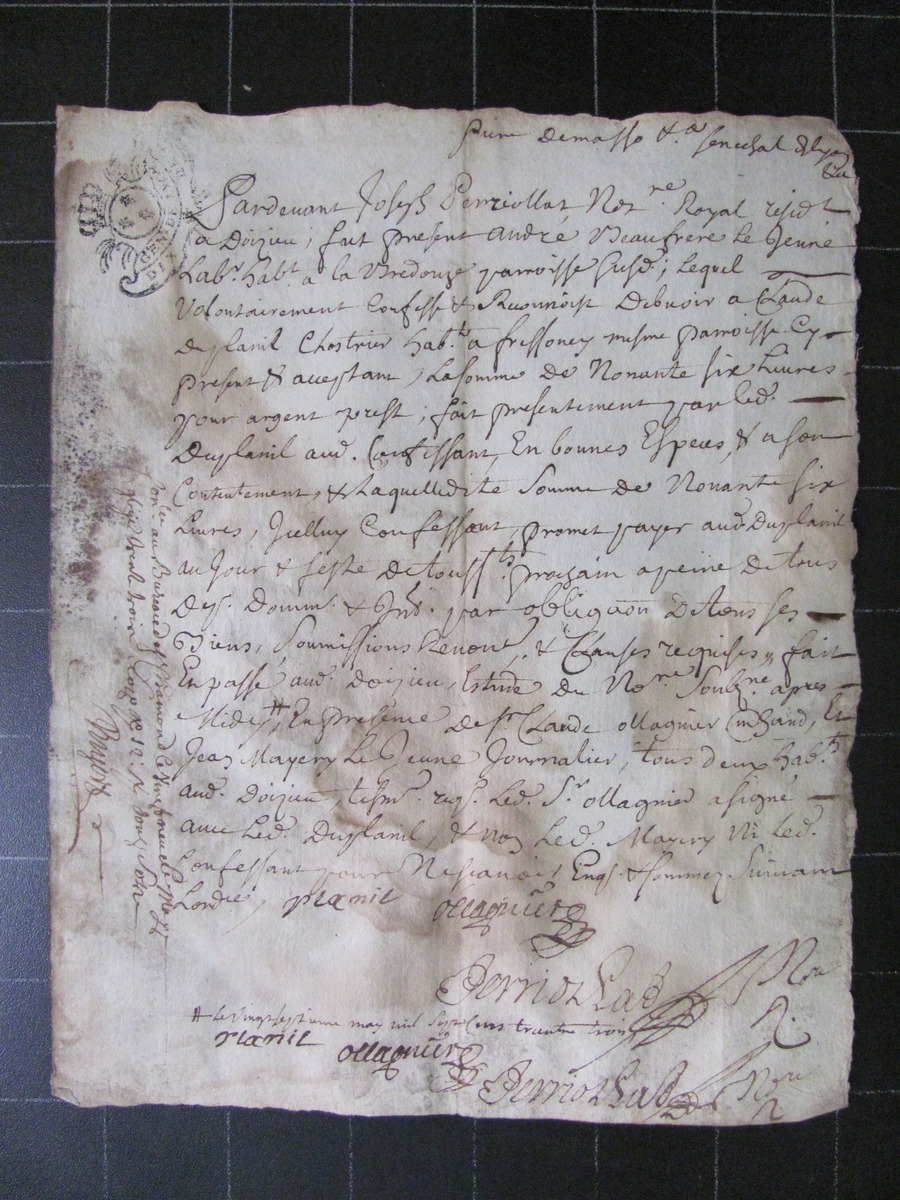 Pierre Demasso &.a Senechal Delyon
Pardevant Joseph Perriollat Not.re Royal resid.t
a Doizieu, fut present André Beaufrere Le Jeune
Lab.r hab.t a la parroisse Susd.; Lequel
Volontairement Confesse & Reconnoist Debvoir a Claude
duplanil Chastrier hab.t a fressoney mesme parroisse Cy
present & acceptant, La somme de Nonante six Livres
pour argent prest; fait presentement par led.
Duplanil aud. Confessant, En bonnes Especes, & a son
Contentement, & Laquelledite Somme de Nonante six
Livres, Icelluy Confessant promet payer aud. Duplanil
au Jour & feste de touss.ts prochain a peine de tous
desp. Domm. & Int. par obligãon De tous ses
Biens, Soumissions Renonc. & Clauses requises, fait
Et passé aud. Doizieu, Estude du No.re Soubz.né apres
Midy #, En presence de s.r Claude ollagnier march͂and, Et
Jean Mayery Le Jeune Journalier, tous deux hab.ts
aud. Doizieu, tesm. req. Led. S.r ollagnier a signé
avec Led. Duplanil, & non Led. Mayery Ni Led.
Confessant pour Ne scavoir, Enq. & sommez Suivant
Lordce,
planil ollagnier
Perriollat No.re R.
# le vingt septieme may mil sept cens trante trois
planil ollagnier
Perriollat No.re R
au Bureau de St Chamond Le